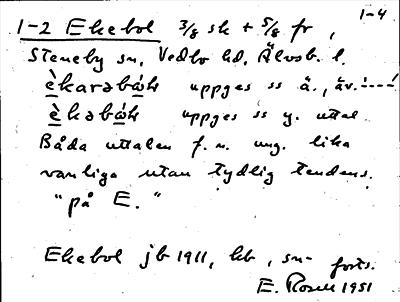 1-4
1-2 Ekebol 3/8 sk + 5/8 fr,
Steneby sn, Vedbo hd, Älvsb. l.
èkarəbὼɫ uppges ss ä., äv. -́---̀!
èkəbὼɫ uppges ss y. uttal.
Båda uttalen f.n. ung. lika
vanliga utan tydlig tendens.
"på E."
Ekebol jb 1911, kb, sn-
forts.
E. Rosell 1951